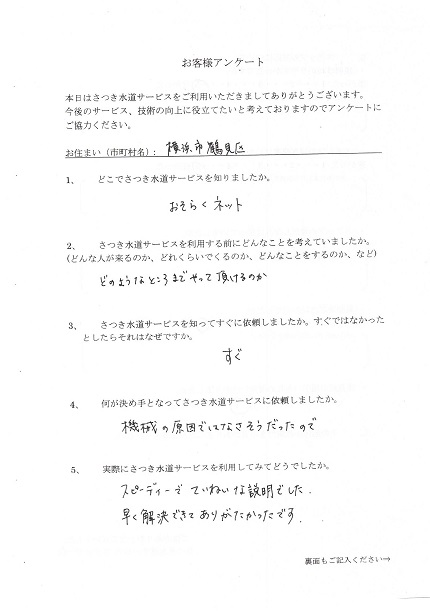 お客様アンケート
本日はさつき水道サービスをご利用いただきましてありがとうございます。
今後のサービス、技術の向上に役立てたいと考えておりますのでアンケートに
ご協力ください。
お住まい（市町村名）： 横浜市鶴見区
1、 どこでさつき水道サービスを知りましたか。
おそらくネット
2、 さつき水道サービスを利用する前にどんなことを考えていましたか。
（どんな人が来るのか、どれくらいでくるのか、どんなことをするのか、など）
どのようなところまでやって頂けるのか
3、 さつき水道サービスを知ってすぐに依頼しましたか。すぐではなかった
としたらそれはなぜですか。
すぐ
4、 何が決め手となってさつき水道サービスに依頼しましたか。
機械の原因ではなさそうだったので
5、 実際にさつき水道サービスを利用してみてどうでしたか。
スピーディーでていねいな説明でした.
早く解決できてありがたかったです.
裏面もご記入ください→